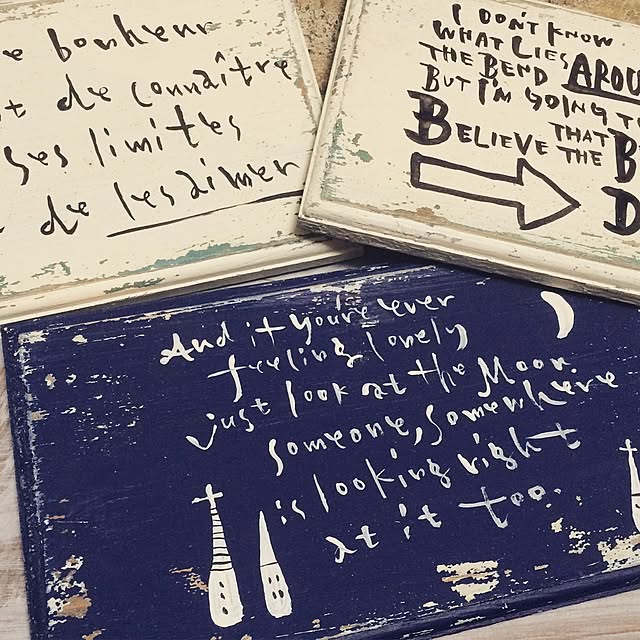 e bonheur
t de connaître
ses limites
de les aimer
I DON'T KNOW
WHAT LIES
THE BEND AROU
BUT I'M GOING T
THAT
BELIEVE THE B
D
And it you're ever
feeling lovely
just look at the Moon
someone, somewhere
is looking right
at it too.